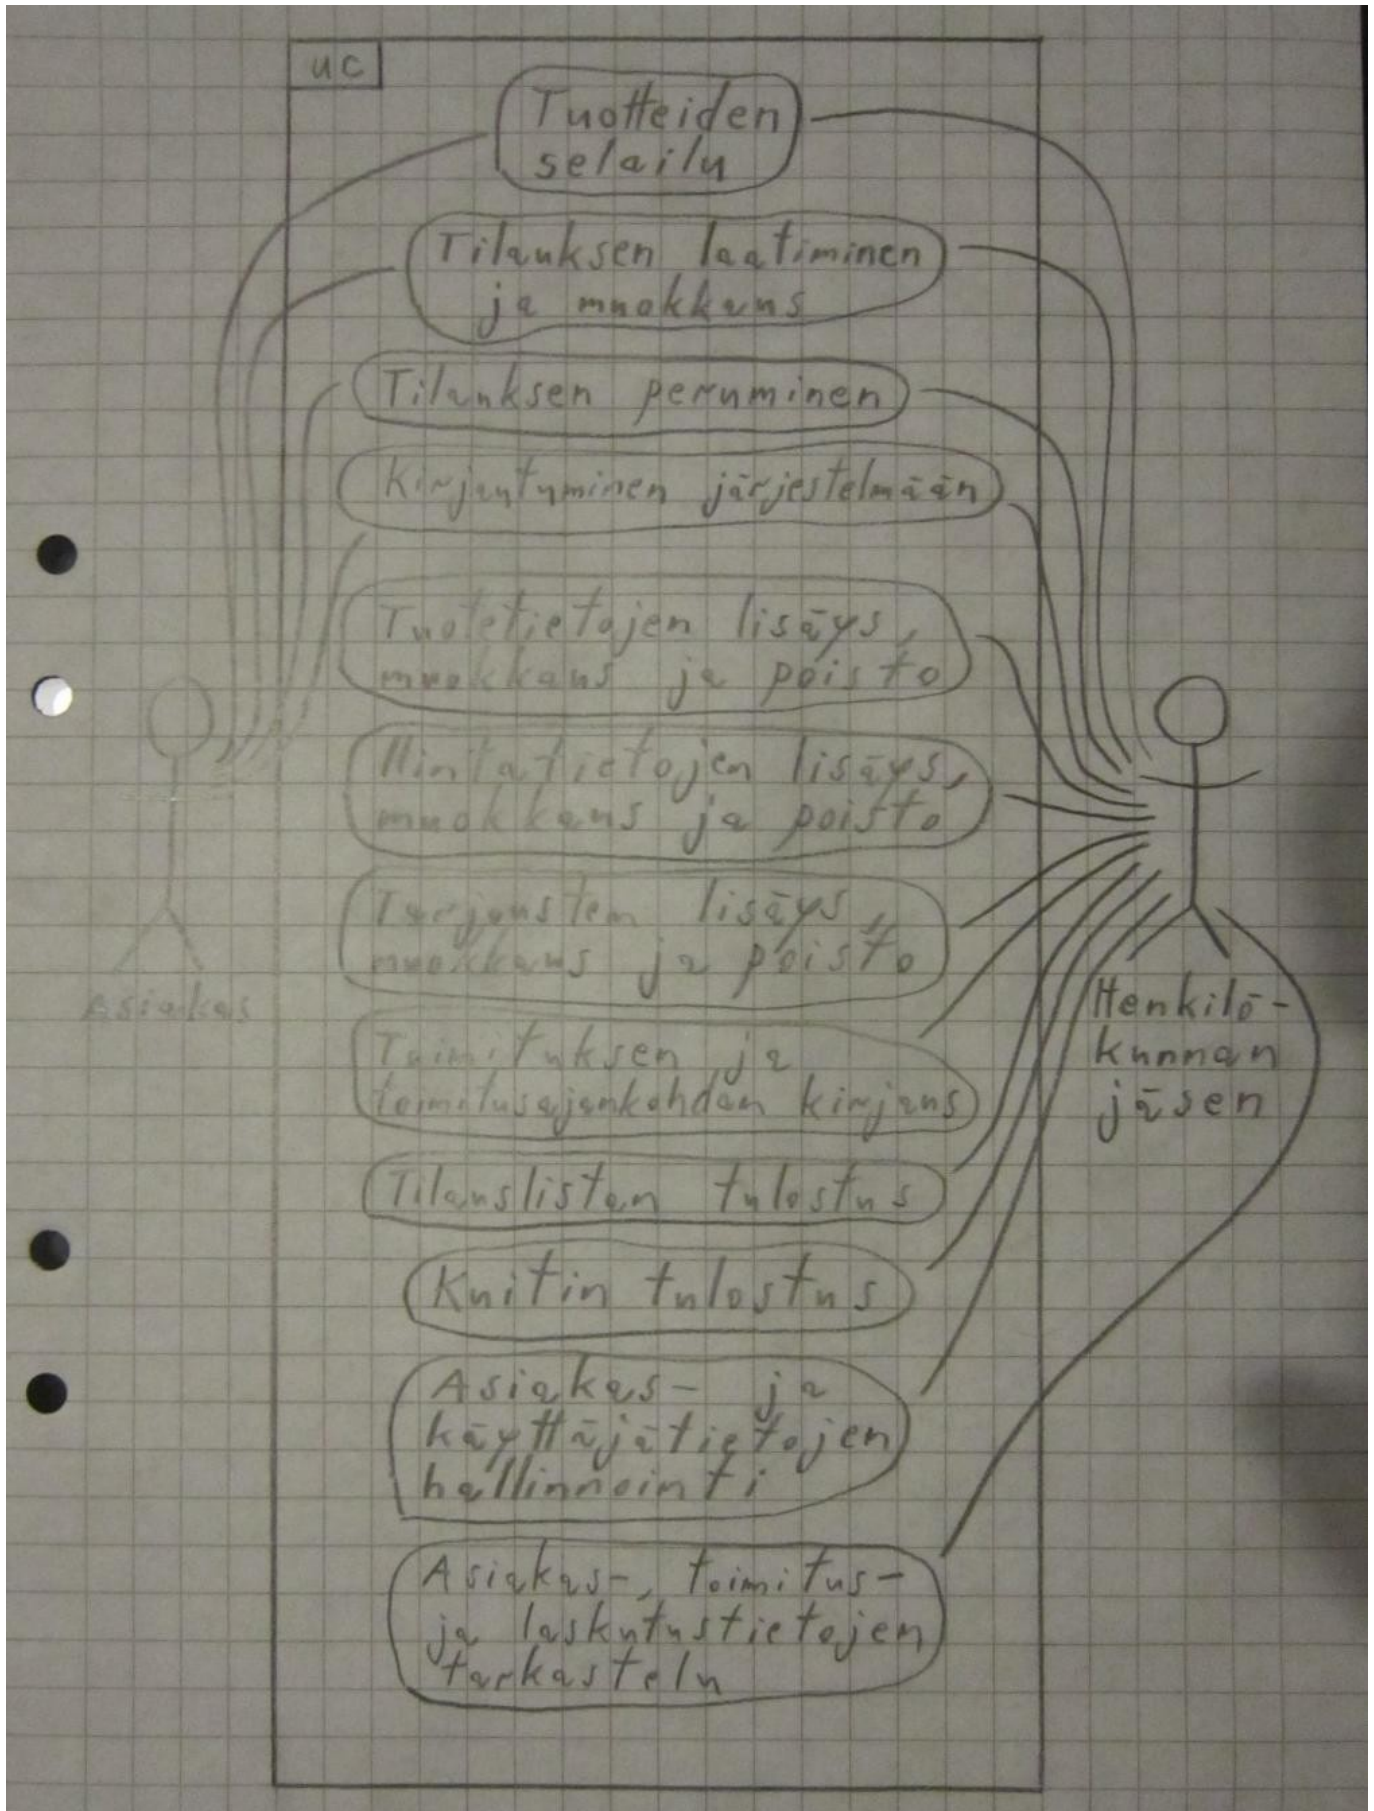 uc
Tuotteiden
selailu
Tilauksen laatiminen
ja muokkaus
Tilauksen peruminen
Kirjautuminen järjestelmään
Tuotetietojen lisäys,
muokkaus ja poisto
Hintatietojen lisäys,
muokkaus ja poisto
Tarjousten lisäys,
muokkaus ja poisto
Asiakas
Henkilö-
kunnan
jäsen
Toimituksen ja
toimitusajankohdan kirjaus
Tilauslistan tulostus
Kuitin tulostus
Asiakas- ja
käyttäjätietojen
hallinnointi
Asiakas-, toimitus-
ja laskutustietojen
tarkastelu